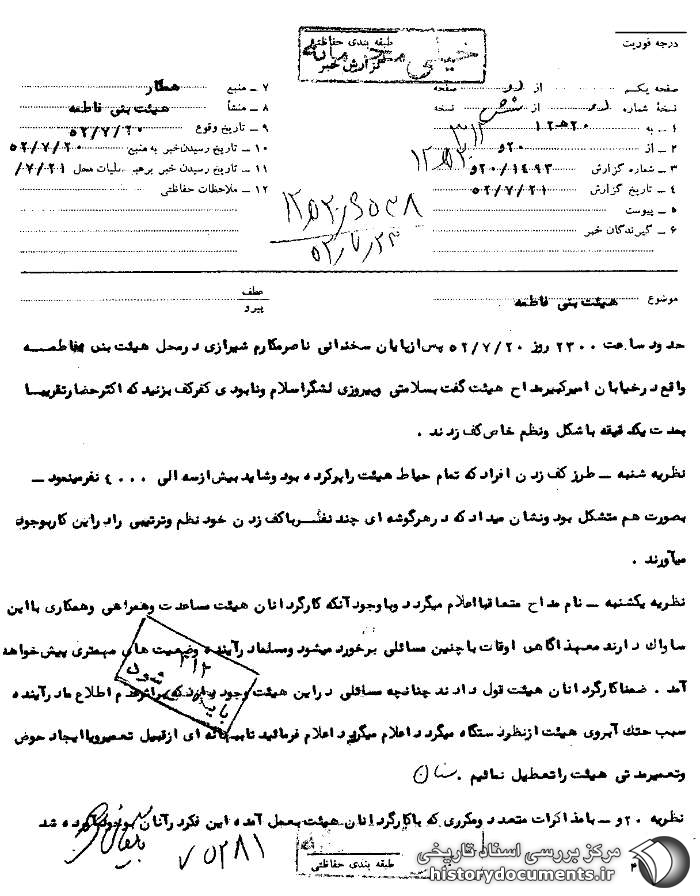 درجه فوریت
طبقه بندی حفاظتی
خیلی محرمانه
گزارش خبر
صفحه یکم از دو صفحه
نسخهٔ شماره دو از شش نسخه
۱ ــ به ۲۰ هـ ۱۲
۳۱۲
۲ ــ از ۲۰و
۳ ــ شماره گزارش ۲۰/۱۴۹۳و
۴ ــ تاریخ گزارش ۵۲/۷/۲۱
۵ ــ پیوست
۶ ــ گیرندگان خبر
۷ ــ منبع همکار
۸ ــ منشأ هیئت بنی فاطمه
۹ ــ تاریخ وقوع ۵۲/۷/۲۰
۱۰ ــ تاریخ رسیدن خبر به منبع ۵۲/۷/۲۰
۱۱ ــ تاریخ رسیدن خبر برهبر عملیات محل ۷/۲۱/
۱۲ ــ ملاحظات حفاظتی
۵۲/۷/۲۴
موضوع هیئت بنی فاطمه
عطف
پیرو
حدود ساعت ۲۳۰۰ روز ۵۲/۷/۲۰ پس از پایان سخنرانی ناصر مکارم شیرازی در محل هیئت بنی فاطمه
واقع در خیابان امیرکبیر مداح هیئت گفت بسلامتی وپیروزی لشگر اسلام ونابودی کفر کف بزنید که اکثر حضار تقریبا
بمدت یکدقیقه با شکل ونظم خاص کف زدند .
نظریه شنبه ــ طرز کف زدن افراد که تمام حیاط هیئت را پر کرده بود وشاید بیش از سه الی ۴۰۰۰ نفر مینمود ــ
بصورت هم متشکل بود ونشان میداد که در هر گوشه ای چند نفر با کف زدن خود نظم وترتیبی را در این کار بوجود
میآورند .
نظریه یکشنبه ــ نام مداح متعاقبا اعلام میگردد وبا وجود آنکه کارگردانان هیئت مساعدت وهمراهی وهمکاری با این
ساواک دارند معهذا گاهی اوقات با چنین مسائلی برخورد میشود ومسلما در آینده وضعیت های مهمتری پیش خواهد
آمد . ضمنا کارگردانان هیئت قول دادند چنانچه مسائلی در این هیئت وجود دارد که براثر عدم اطلاع ما در آینده
سبب هتک آبروی هیئت از نظر دستگاه میگردد اعلام میگردد اعلام فرمائید تا ببهانه ای از قبیل تعمیر ویا ایجاد حوض
وتعمیر مدتی هیئت را تعطیل نمائیم .
نظریه ۲۰و ــ با مذاکرات متعدد ومکرری که با کارگردانان هیئت بعمل آمده این فکر در آنان بوجود آورده شد
۳۱۲
بایگانی شود
طبقه بندی حفاظتی
مرکز بررسی اسناد تاریخی
historydocuments.ir